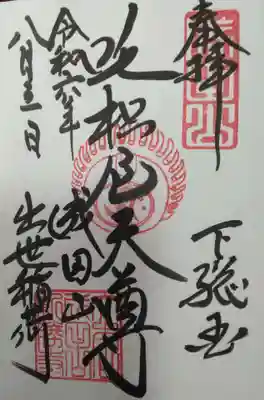 奉拝
下総国
吒枳尼天尊
成田山
令和六年
八月三一日
出世稲荷